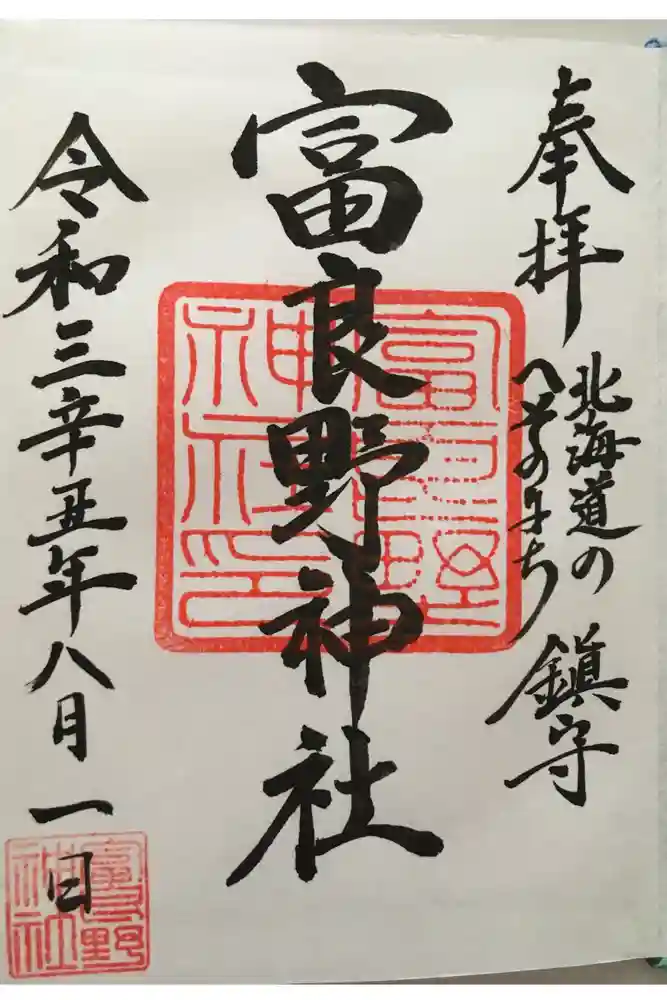 奉拝
北海道の
へそのまち
鎮守
富良野神社
富良野神社印
令和三辛丑年八月一日
富良野神社